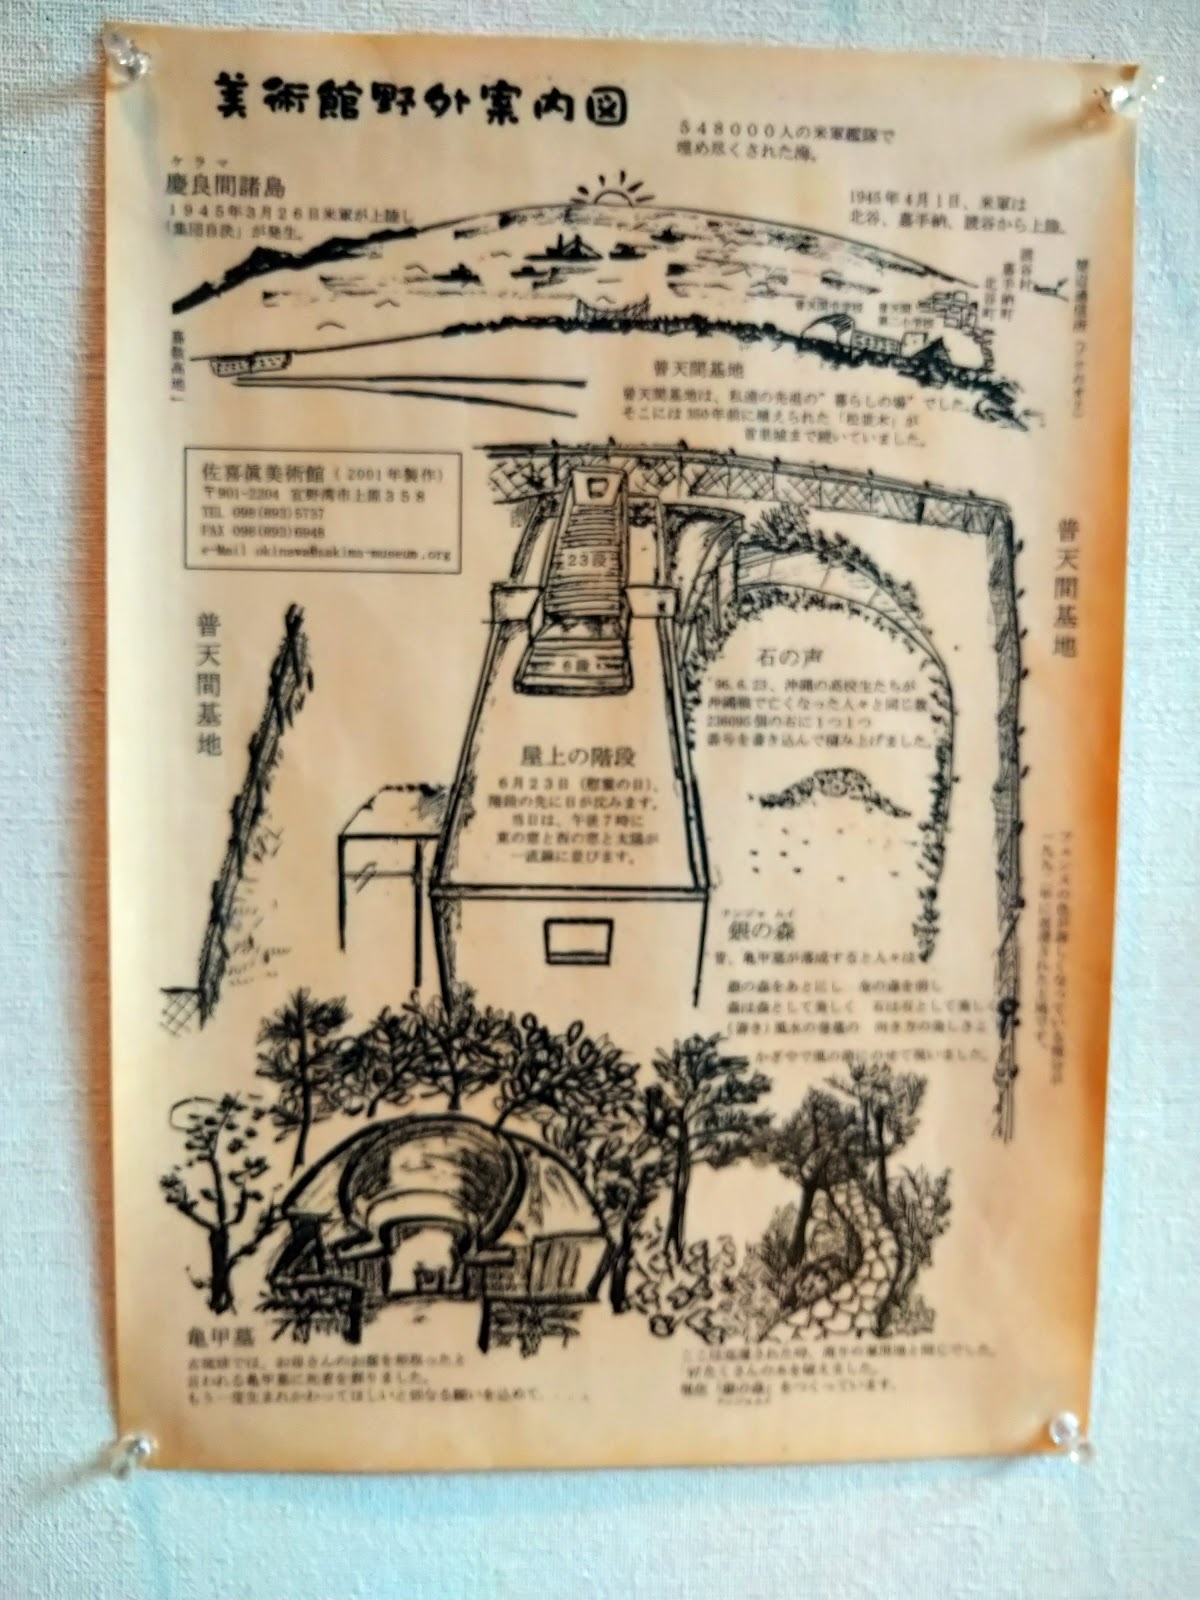 美術館野外案内図
548000人の米軍艦隊で
埋め尽くされた海。
ケラマ
慶良間諸島
1945年3月26日米軍が上陸し
「集団自決」が発生。
1945年4月1日、米軍は
北谷、嘉手納、読谷から上陸。
読谷村
嘉手納町
北谷町
嘉数高地
普天間
第二小学校
普天間基地
普天間基地は、私達の先祖の"暮らしの場"でした。
そこには350年前に植えられた「松並木」が
首里城まで続いていました。
佐喜眞美術館(2001年製作)
〒901-2204 宜野湾市上原358
TEL 098(893)5737
FAX 098(893)6948
e-Mail okinawa@sakima-museum.org
23段
6段
普天間基地
普天間基地
石の声
'96.6.23、沖縄の高校生たちが
沖縄戦で亡くなった人々と同じ数
236095個の石に1つ1つ
番号を書き込んで積み上げました。
屋上の階段
6月23日(慰霊の日)、
階段の先に日が沈みます。
当日は、午後7時に
東の窓と西の窓と太陽が
一直線に並びます。
ナンジャ ムイ
銀の森
昔、亀甲墓が落成すると人々は
銀の森をあとにし 金の森を前し
森は森として美しく 石は石として美しく
かぎやで風の節にのせて祝いました。
亀甲墓
古琉球では、お母さんのお腹を形取ったと
言われる亀甲墓に死者を葬りました。
もう一度生まれかわってほしいと切なる願いを込めて....
ここは返還された時、周りの軍用地と同じでした。
たくさんの木を植えました。
現在「銀の森」をつくっています。